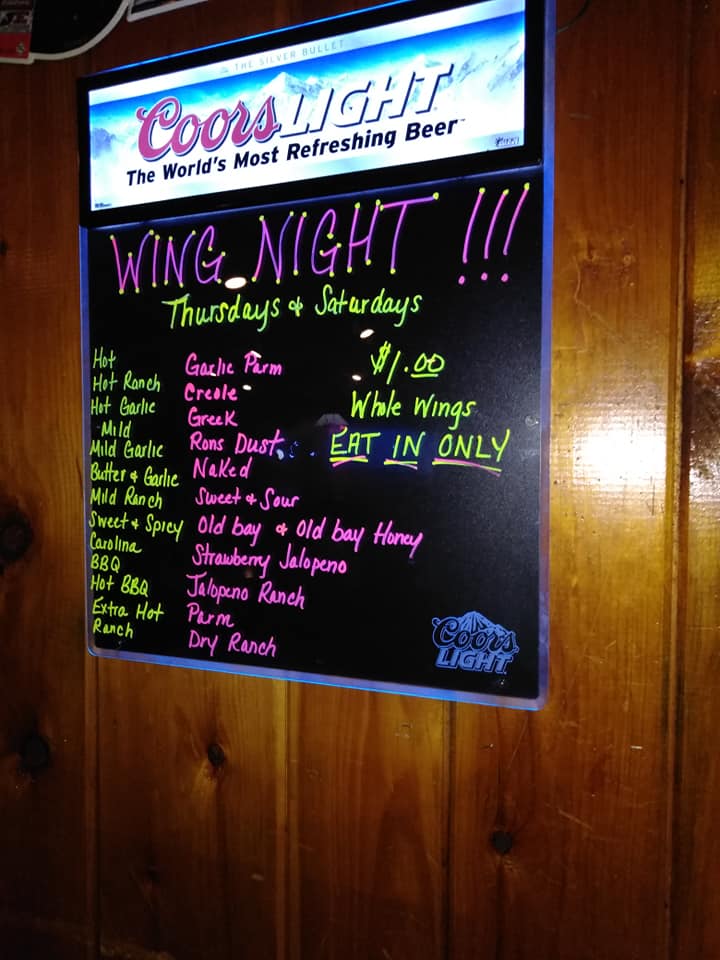 THE SILVER BULLET
Coors LIGHT
The World's Most Refreshing Beer
WING NIGHT !!!
Thursdays & Saturdays
Hot
Hot Ranch
Hot Garlic
Mild
Mild Garlic
Butter & Garlic
Mild Ranch
Sweet & Spicy
Carolina
BBQ
Hot BBQ
Extra Hot
Ranch
Garlic Parm
Creole
Greek
Rons Dust
Naked
Sweet & Sour
Old bay & Old bay Honey
Strawberry Jalopeno
Jalopeno Ranch
Parm
Dry Ranch
$1.00
Whole Wings
EAT IN ONLY
Coors
LIGHT